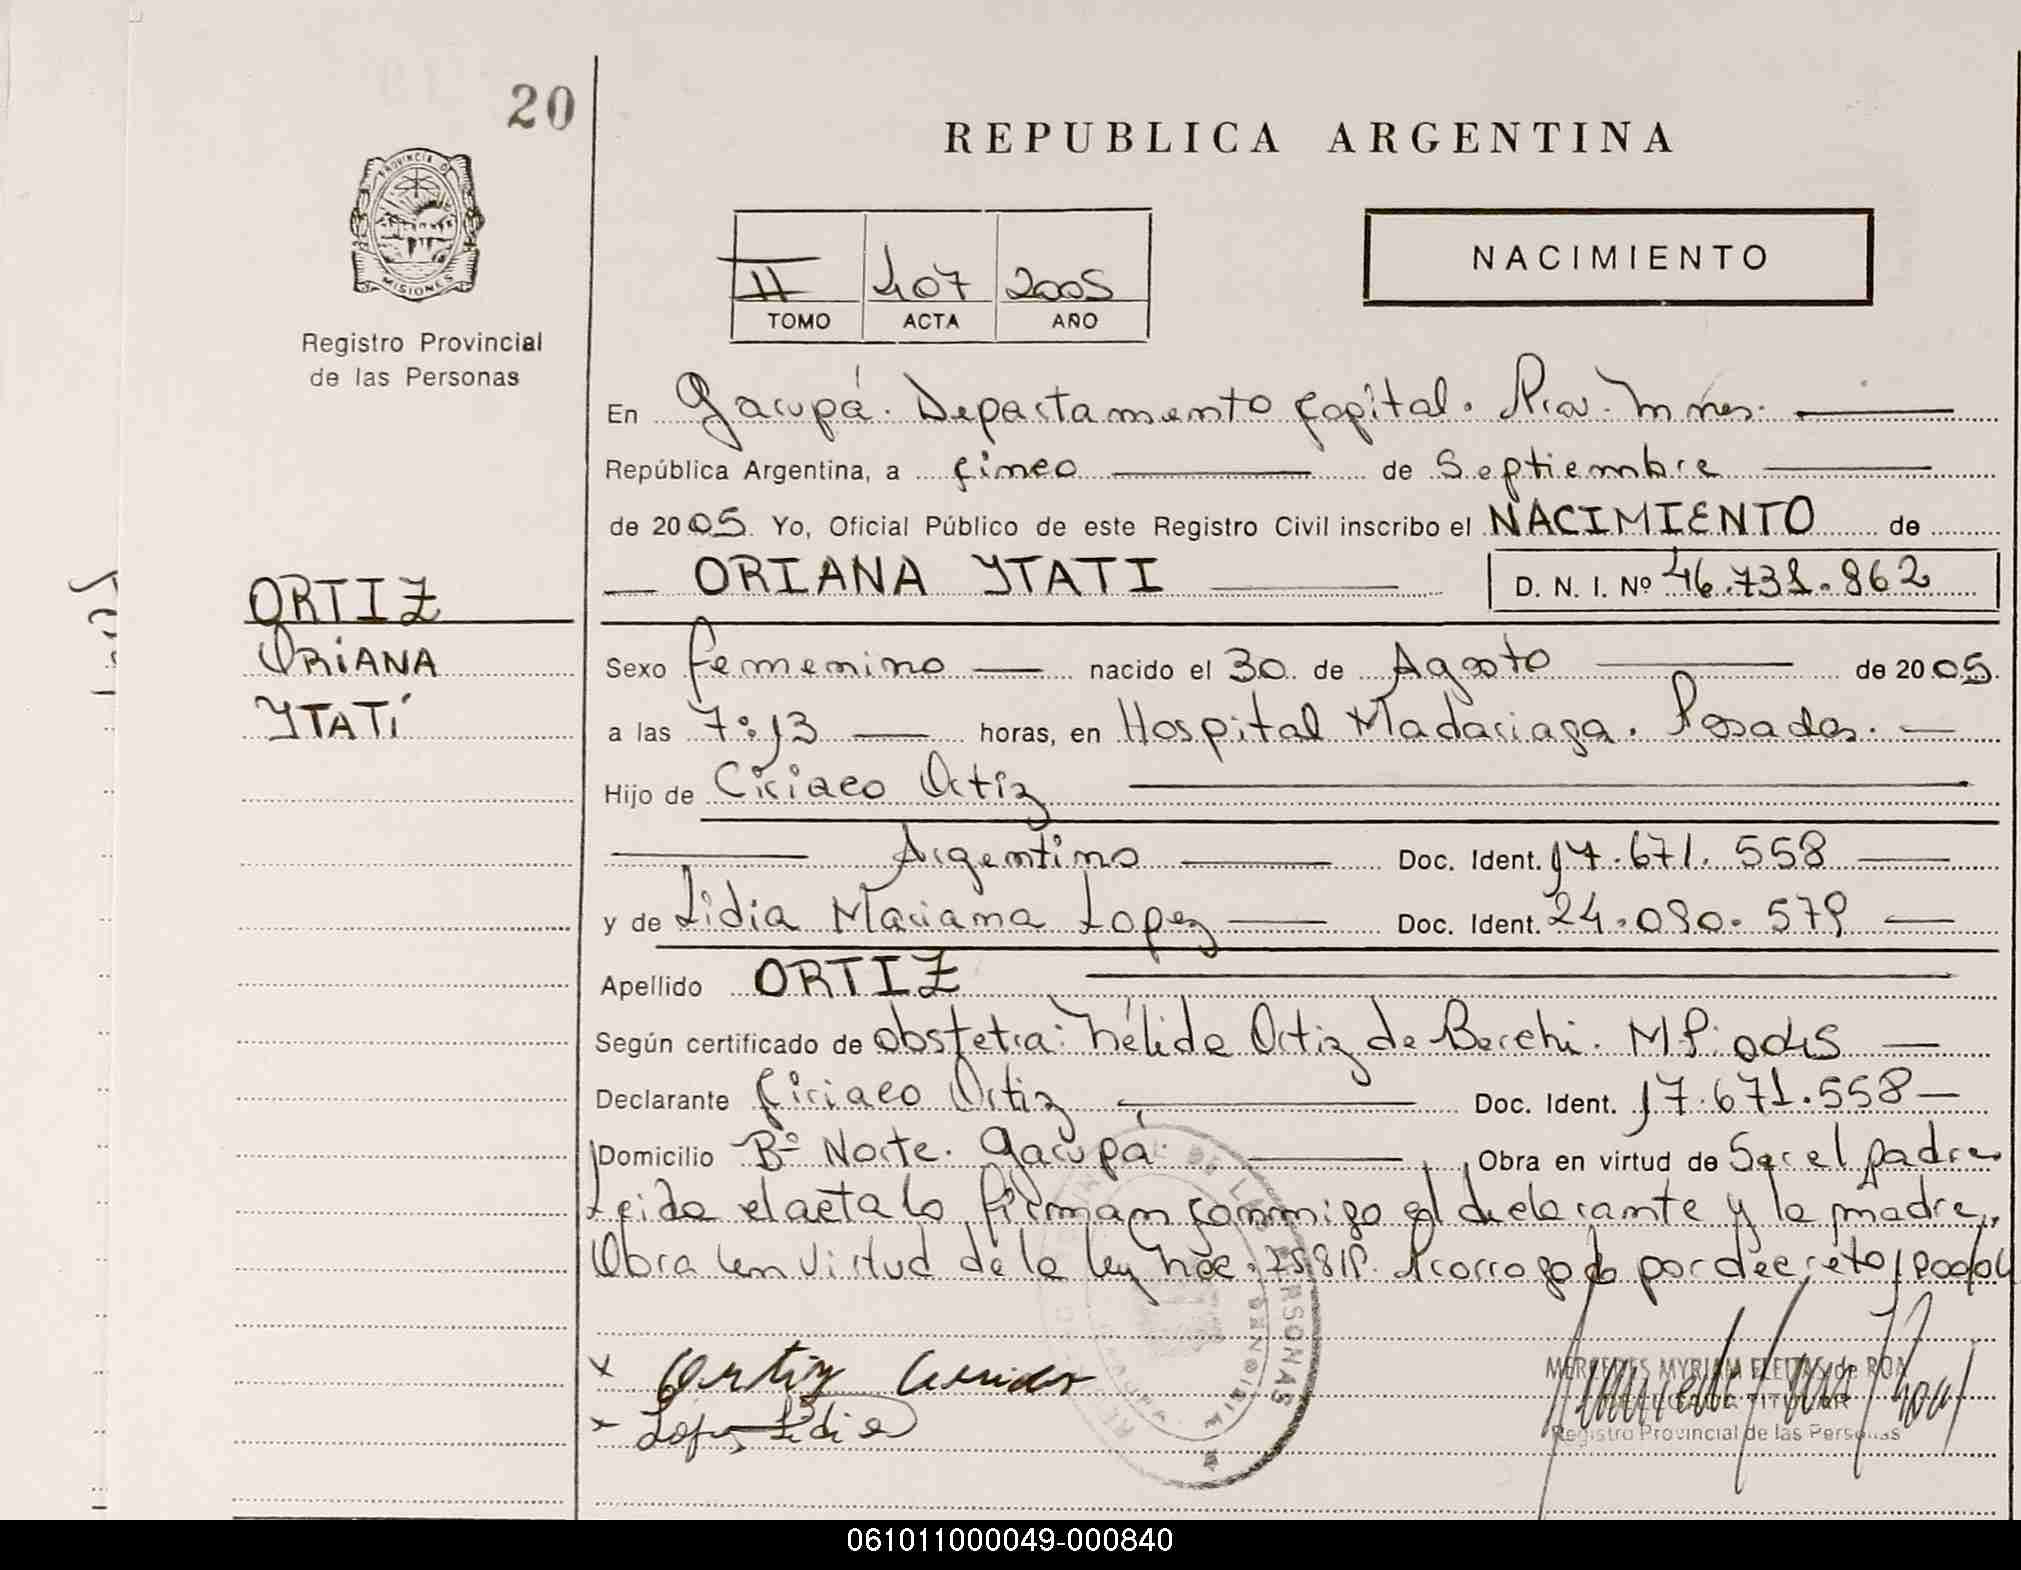 20
REPUBLICA ARGENTINA
PROVINCIA D
MISIONES
Registro Provincial
de las Personas
II 407 2005
TOMO ACTA AÑO
NACIMIENTO
En Garupá. Departamento Capital. Prov. Mnes.
República Argentina, a Cinco de Septiembre
de 2005. Yo, Oficial Público de este Registro Civil inscribo el NACIMIENTO de
ORIANA YTATI D. N. I. Nº 46.731.862
ORTIZ
ORIANA
YTATÍ
Sexo femenino nacido el 30 de Agosto de 2005.
a las 7:13 horas, en Hospital Madariaga. Posadas.
Hijo de Ciriaco Ortiz
Argentino Doc. Ident. 17.671.558
y de Lidia Mariana Lopez Doc. Ident. 24.090.579
Apellido ORTIZ
Según certificado de obstetra: Nélida Ortiz de MP:
Declarante Ciriaco Ortiz Doc. Ident. 17.671.558
Domicilio Bº Norte. Garupá Obra en virtud de Ser el padre
Leida el acta la firman conmigo el declarante y la madre.
Obra en virtud de la ley nac. 25819. Prorrogado por decreto
Ortiz
Lopez Lidia
MERCEDES MYRIAM FLEITAS de ROA
TITULAR
Registro Provincial de las Personas
DE LAS PERSONAS
MISIONES
061011000049-000840